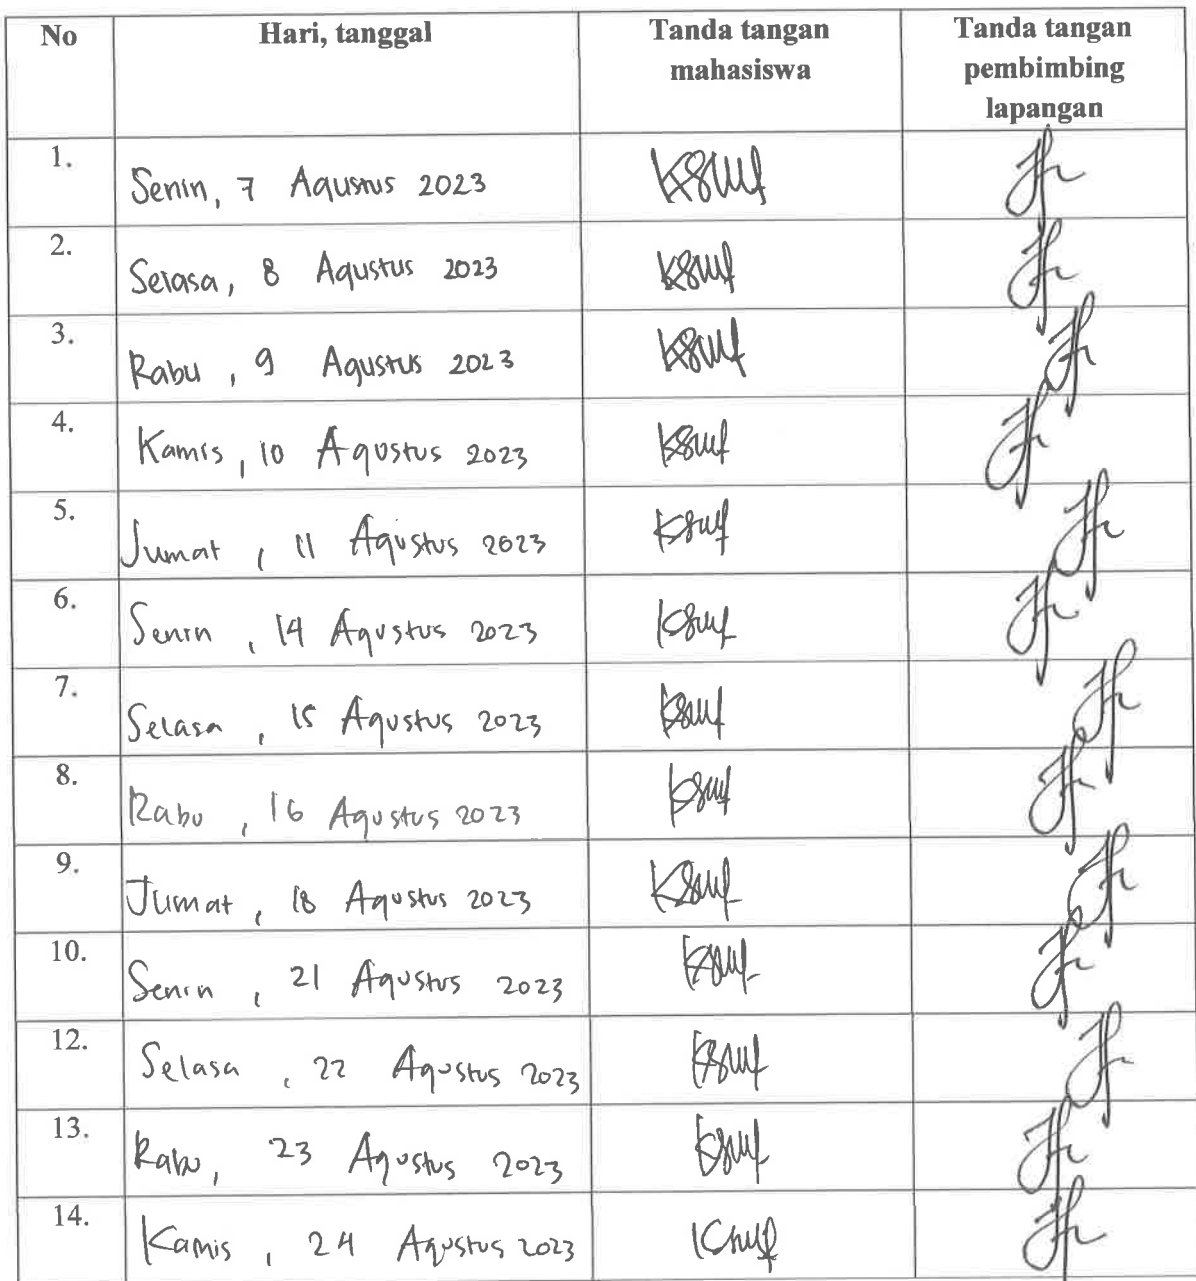 No Hari, tanggal Tanda tangan mahasiswa Tanda tangan pembimbing lapangan
1. Senin, 7 Agustus 2023
2. Selasa, 8 Agustus 2023
3. Rabu, 9 Agustus 2023
4. Kamis, 10 Agustus 2023
5. Jumat, 11 Agustus 2023
6. Senin, 14 Agustus 2023
7. Selasa, 15 Agustus 2023
8. Rabu, 16 Agustus 2023
9. Jumat, 18 Agustus 2023
10. Senin, 21 Agustus 2023
12. Selasa, 22 Agustus 2023
13. Rabu, 23 Agustus 2023
14. Kamis, 24 Agustus 2023